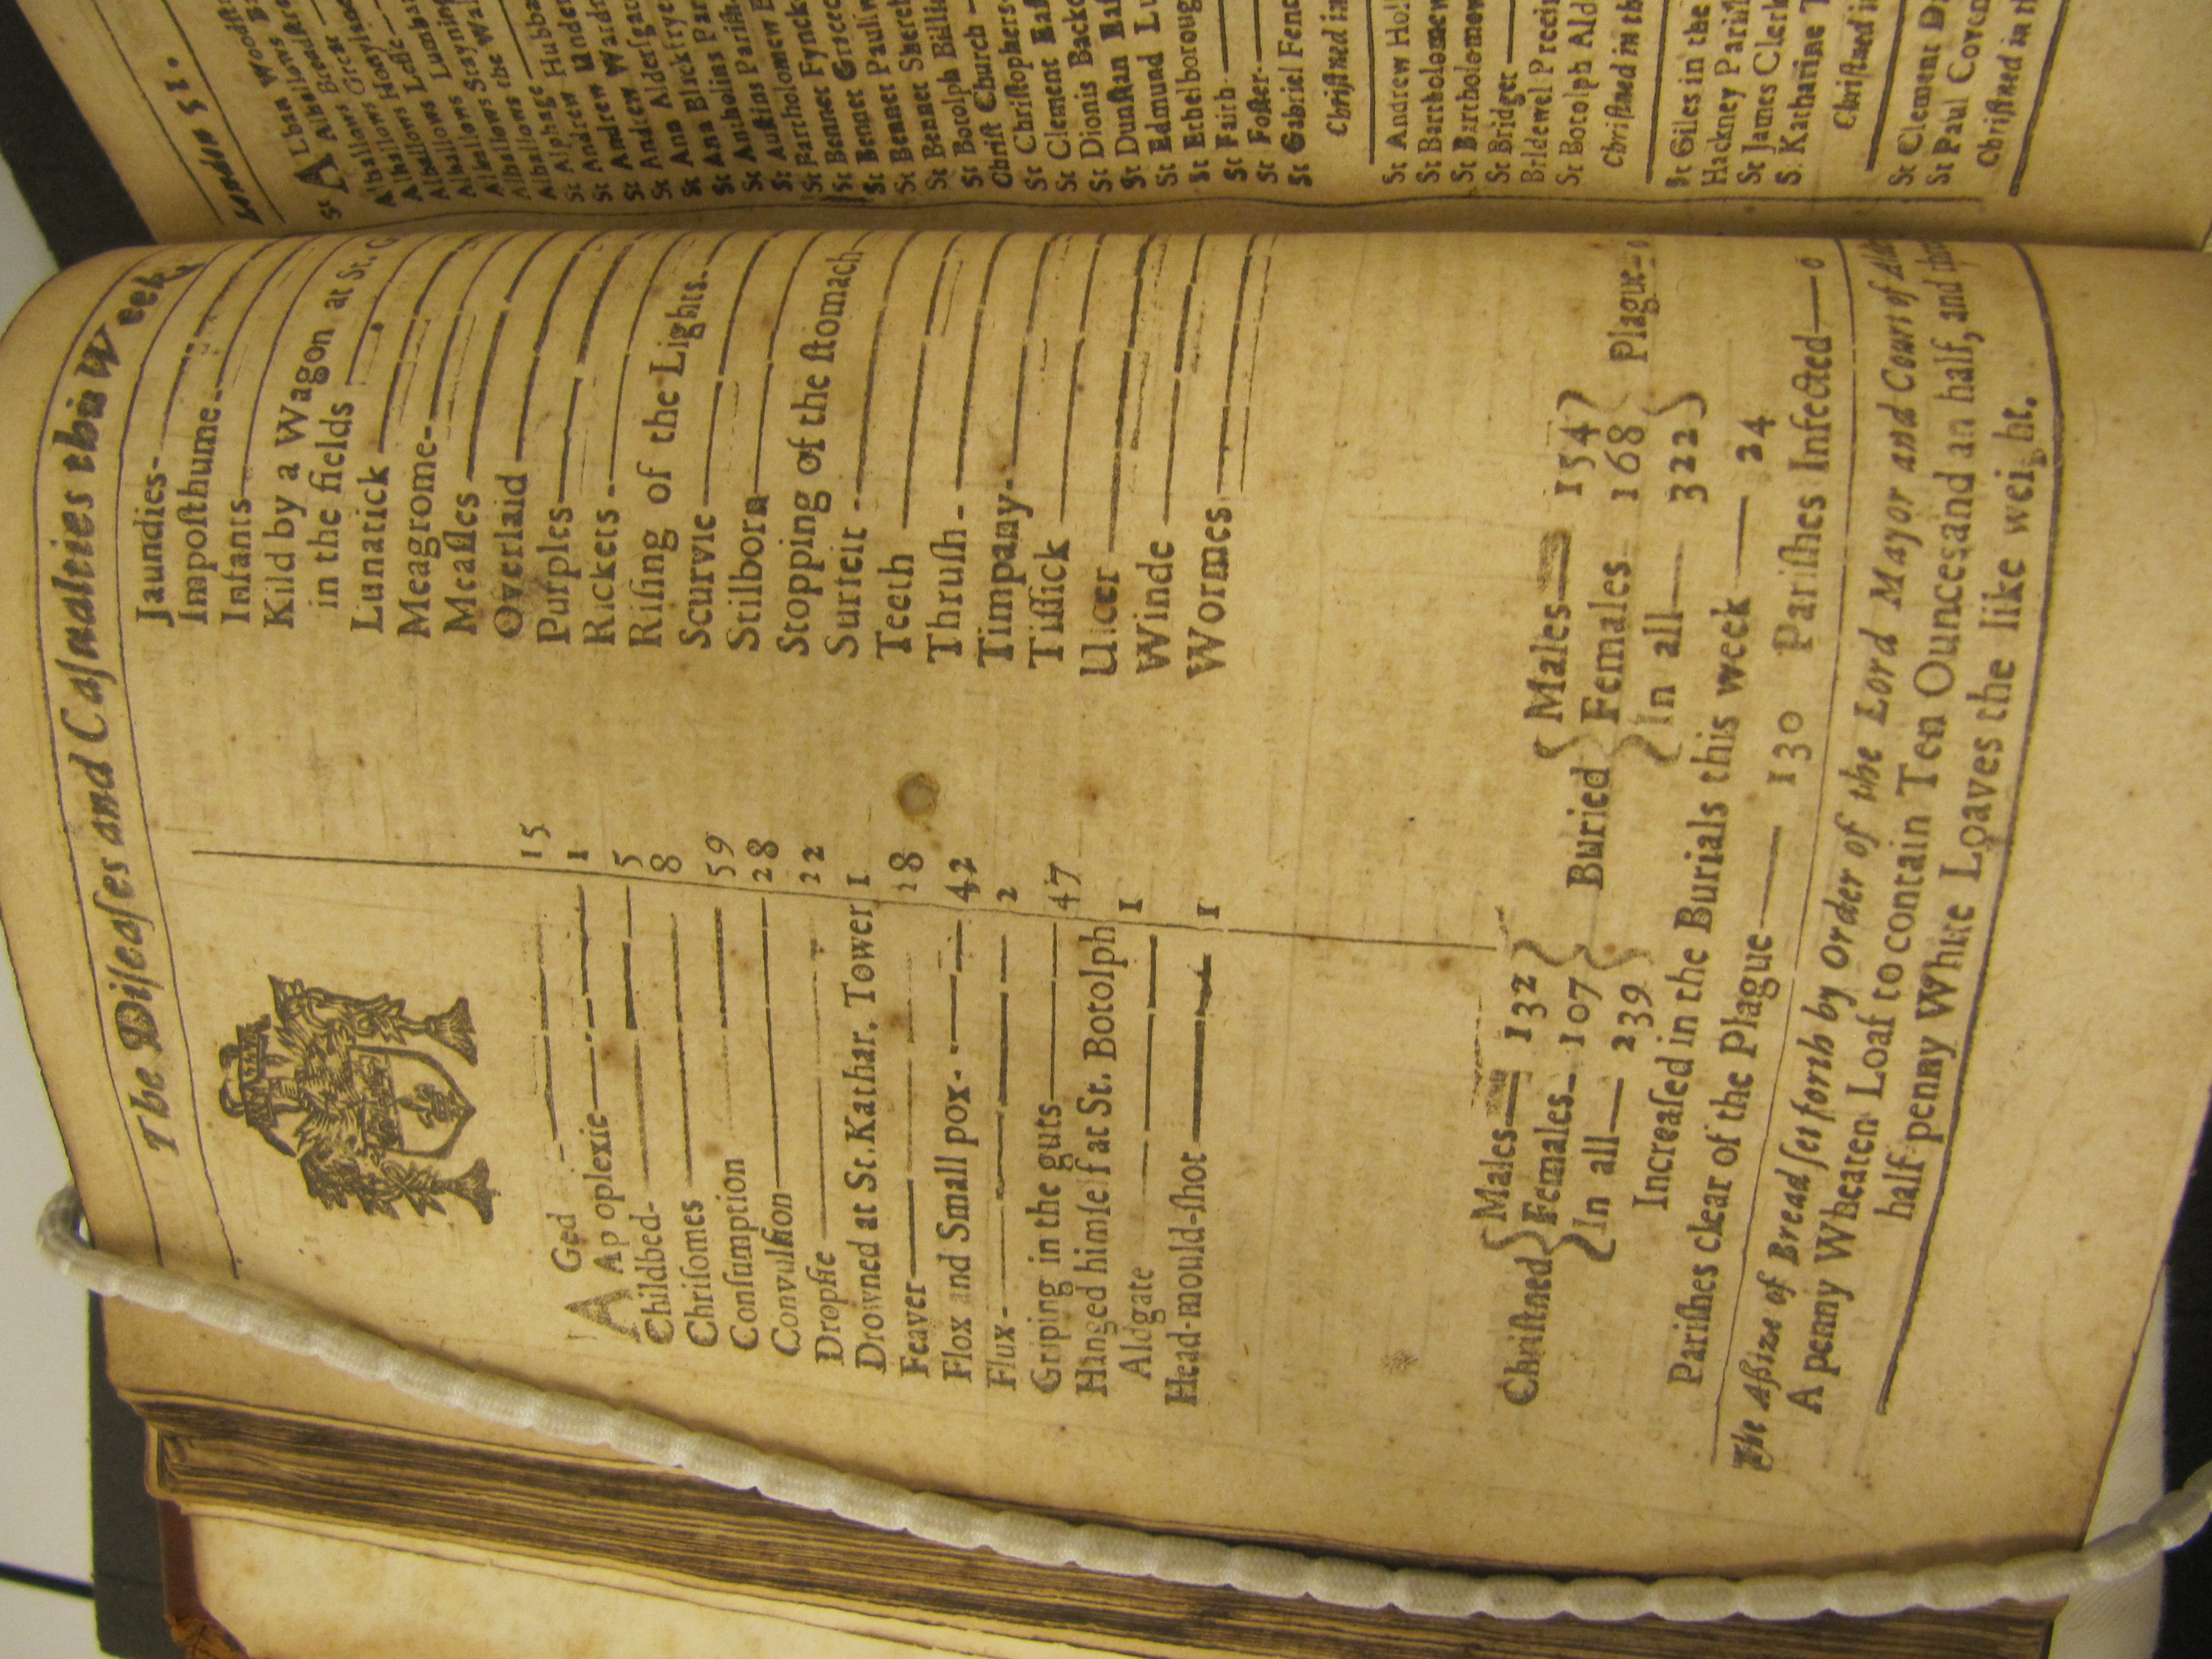 The Diseases and Casualties this Week
AGed 15
Apoplexie 1
Childbed 5
Chrisomes 8
Consumption 59
Convulsion 28
Dropsie 22
Drowned at St. Kathar. Tower 1
Feaver 18
Flox and Small pox 42
Flux 2
Griping in the guts 47
Hanged himself at St. Botolph
Aldgate 1
Head-mould-shot 1
Jaundies
Imposthume
Infants
Kild by a Wagon at St. G
in the fields
Lunatick
Meagrome
Measles
Overlaid
Purples
Rickets
Rising of the Lights
Scurvie
Stilborn
Stopping of the stomach
Surfeit
Teeth
Thrush
Timpany
Tissick
Ulcer
Winde
Wormes
Christned Males 132
Females 107
In all 239
Buried Males 154
Females 168
In all 322
Plague 0
Increased in the Burials this week 24
Parishes clear of the Plague 130 Parishes Infected 0
The Assize of Bread set forth by Order of the Lord Mayor and Court of Alde
A penny Wheaten Loaf to contain Ten Ounces and an half, and thre
half-penny White Loaves the like weight.
London 51.
St ALban Woodstr
Alhallows
Alhallows Bread
Alhallows Great
Alhallows Hony
Alhallows Lesse
Alhallows Lumbar
Alhallows Stayning
Alhallows the Wal
Alphage
St Andrew Hubba
St Andrew Under
St Andrew Wardr
St Ann Aldersgat
St Ann Blackfrye
St Antholins Paris
St Austins Parish
St Bartholomew E
St Bennet Fynck
St Bennet Gracec
St Bennet Paulsw
St Bennet Sherel
St Botolph Billin
Christ Church
St Christophers
St Clement Eas
St Dionis Backc
St Dunstan Eas
St Edmund Lu
St Ethelboroug
St Faith
St Foster
St Gabriel Fenc
Christned in
St Andrew Hol
St Bartholomew
St Bartholomew
St Bridget
Bridewel Precin
St Botolph Ald
Christned in th
St Giles in the
Hackney Paris
St James Clerk
S. Katharine T
Christned in
St Clement D
St Paul Coven
Christned in t